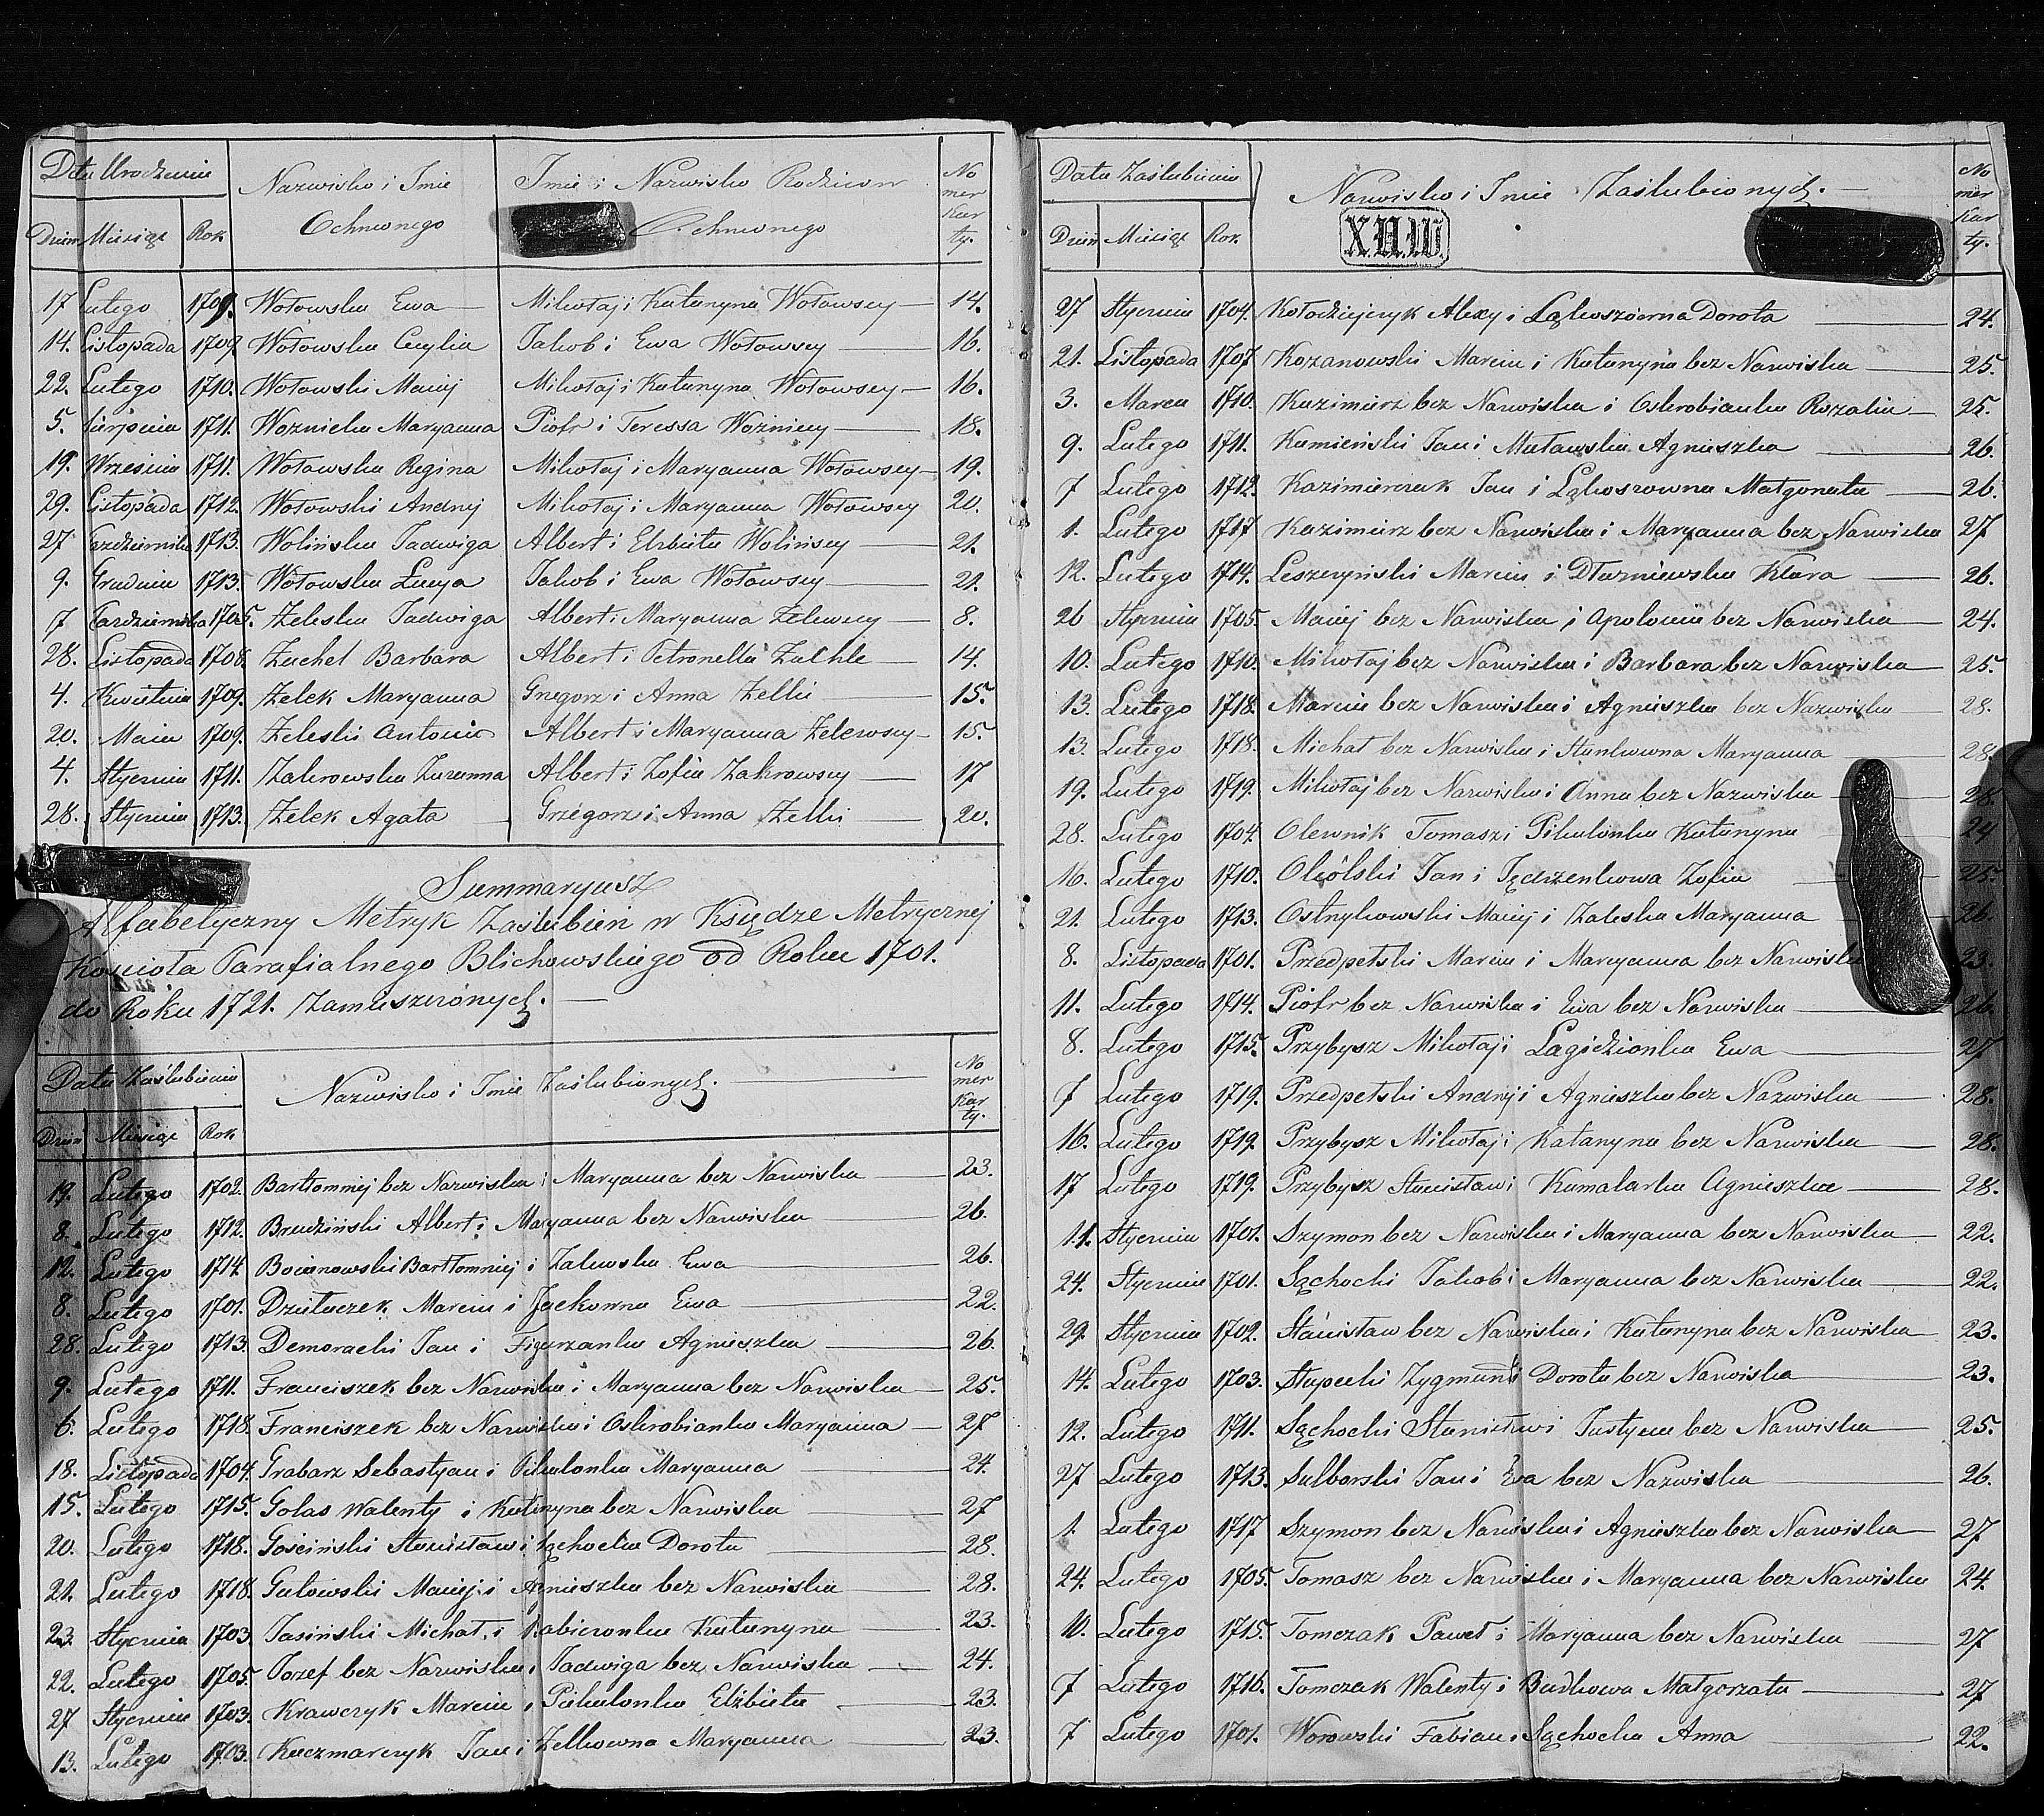 Data Urodzenia
Nazwisko i Imie
Ochrzconego
Imie i Nazwisko Rodziców
Ochrzconego
No
mer
Kar
ty.
Dzień Miesiąc Rok
17 Lutego 1709. Wołowska Ewa Mikołaj i Katarzyna Wołowscy 14.
14. Listopada 1709. Wołowska Cecylia Jakob i Ewa Wołowscy 16.
22. Lutego 1710. Wołowski Maciej Mikołaj i Katarzyna Wołowscy 16.
5. Sierpnia 1711. Woznicka Maryanna Piotr i Teressa Wozniccy 18.
19. Września 1711. Wołowska Regina Mikołaj i Maryanna Wołowscy 19.
29. Listopada 1712. Wołowski Andrzej Mikołaj i Maryanna Wołowscy 20.
27 Pazdziernika 1713. Wolińska Jadwiga Albert i Elzbieta Wolińscy 21.
9. Grudnia 1713. Wołowska Łucya Jakob i Ewa Wołowscy 21.
7 Pazdziernika 1705. Zeleska Jadwiga Albert i Maryanna Zelewscy 8.
28. Listopada 1708. Zachel Barbara Albert i Petronella Zachle 14.
4. Kwietnia 1709. Zelek Maryanna Grzegorz i Anna Zelki 15.
20. Maia 1709. Zeleski Antoni Albert i Maryanna Zelewscy 15.
4. Stycznia 1711. Zakrowska Zuzanna Albert i Zofia Zakrowscy 17
28. Stycznia 1713. Zelek Agata Grzegorz i Anna Zelki 20.
Summaryusz
Alfabetyczny Metryk Zaslubień w Księdze Metrycznej
Kościoła Parafialnego Blichowskiego od Roku 1701.
do Roku 1721. Zamieszczonych.
Data Zaślubienia
Nazwisko i Imie Zaślubionych.
No
mer
Kar
ty.
Dzień Miesiąc Rok
19. Lutego 1702. Bartłomiej bez Nazwiska i Maryanna bez Nazwiska 23.
8. Lutego 1712. Brudziński Albert i Maryanna bez Nazwiska 26.
12. Lutego 1714. Boianowski Bartłomiej i Zalewska Ewa 26.
8. Lutego 1701. Dziełaczek Marcin i Jackowna Ewa 22.
28. Lutego 1713. Demoracki Jan i Figurzanka Agnieszka 26.
9. Lutego 1711. Franciszek bez Nazwiska i Maryanna bez Nazwiska 25.
6. Lutego 1718. Franciszek bez Nazwiska i Oskrobianka Maryanna 27
18. Listopada 1704. Grabarz Sebastyan i Pikulonka Maryanna 24.
15. Lutego 1715. Golas Walenty i Katarzyna bez Nazwiska 27
20. Lutego 1718. Gościński Stanisław i Sąchocka Dorota 28.
21. Lutego 1718. Gutowski Maciej i Agnieszka bez Nazwiska 28.
23. Stycznia 1703. Jasiński Michał i Kabieronka Katarzyna 23.
22. Lutego 1705. Jozef bez Nazwiska i Jadwiga bez Nazwiska 24.
27 Stycznia 1703. Krawczyk Marcin i Pikulonka Elżbieta 23.
13. Lutego 1703. Kaczmarczyk Jan i Zelkowna Maryanna 23.
Data Zaślubienia
Nazwisko i Imie Zaślubionych.
X.II.W
No
mer
Kar
ty.
Dzień Miesiąc Rok
27 Stycznia 1704. Kołodziejczyk Alexy i Ląkoszowna Dorota 24.
21. Listopada 1707. Kozanowski Marcin i Katarzyna bez Nazwiska 25.
3. Marca 1710. Kazimierz bez Nazwiska i Oskrobianka Rozalia 25.
9. Lutego 1711. Kamieński Jan i Matawska Agnieszka 26.
7 Lutego 1712. Kazimierczak Jan i Ląkoszowna Małgorzata 26.
1. Lutego 1717 Kazimierz bez Nazwiska i Maryanna bez Nazwiska 27
12. Lutego 1714. Leszczyński Marcin i Dłuzniewska Klara 26.
26 Stycznia 1705. Maciej bez Nazwiska i Apolonia bez Nazwiska 24.
10. Lutego 1710. Mikołaj bez Nazwiska i Barbara bez Nazwiska 25.
13. Lutego 1718. Marcin bez Nazwiska i Agnieszka bez Nazwiska 28.
13. Lutego 1718. Michał bez Nazwiska i Stankowna Maryanna 28.
19. Lutego 1719. Mikołaj bez Nazwiska i Anna bez Nazwiska 28.
28. Lutego 1704. Olewnik Tomasz i Pikulonka Katarzyna 24
16. Lutego 1710. Okólski Jan i Jędrzenkowa Zofia 25.
21. Lutego 1713. Ostrzykowski Maciej i Zaleska Maryanna 26.
8. Listopada 1701. Przedpełski Marcin i Maryanna bez Nazwiska 23.
11. Lutego 1714. Piotr bez Nazwiska i Ewa bez Nazwiska 26.
8. Lutego 1715. Przybysz Mikołaj i Lagidzionka Ewa 27
7 Lutego 1719. Przedpełski Andrzej i Agnieszka bez Nazwiska 28.
16. Lutego 1719. Przybysz Mikołaj i Katarzyna bez Nazwiska 28.
17 Lutego 1719. Przybysz Stanisław i Kumalarka Agnieszka 28.
11. Stycznia 1701. Szymon bez Nazwiska i Maryanna bez Nazwiska 22.
24. Stycznia 1701. Sąchocki Jakob i Maryanna bez Nazwiska 22.
29. Stycznia 1702. Stanisław bez Nazwiska i Katarzyna bez Nazwiska 23.
14. Lutego 1703. Słupecki Zygmund i Dorota bez Nazwiska 23.
12. Lutego 1711. Sąchocki Stanisław i Justyna bez Nazwiska 25.
27 Lutego 1713. Sulborski Jan i Ewa bez Nazwiska 26.
1. Lutego 1717 Szymon bez Nazwiska i Agnieszka bez Nazwiska 27
24. Lutego 1705. Tomasz bez Nazwiska i Maryanna bez Nazwiska 24.
10. Lutego 1715. Tomczak Paweł i Maryanna bez Nazwiska 27
7 Lutego 1716. Tomczak Walenty i Budkowa Małgorzata 27
7 Lutego 1701. Worowski Fabian i Sąchocka Anna 22.